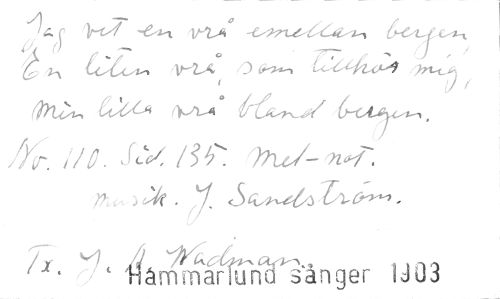 Jag vet en vrå emellan bergen,
En liten vrå, som tillhör mig,
Min lilla vrå bland bergen.
No. 110. Sid. 135. Mel-not.
musik. J. Sandström.
Tx. J. A. Wadman.
Hammarlund sånger 1903